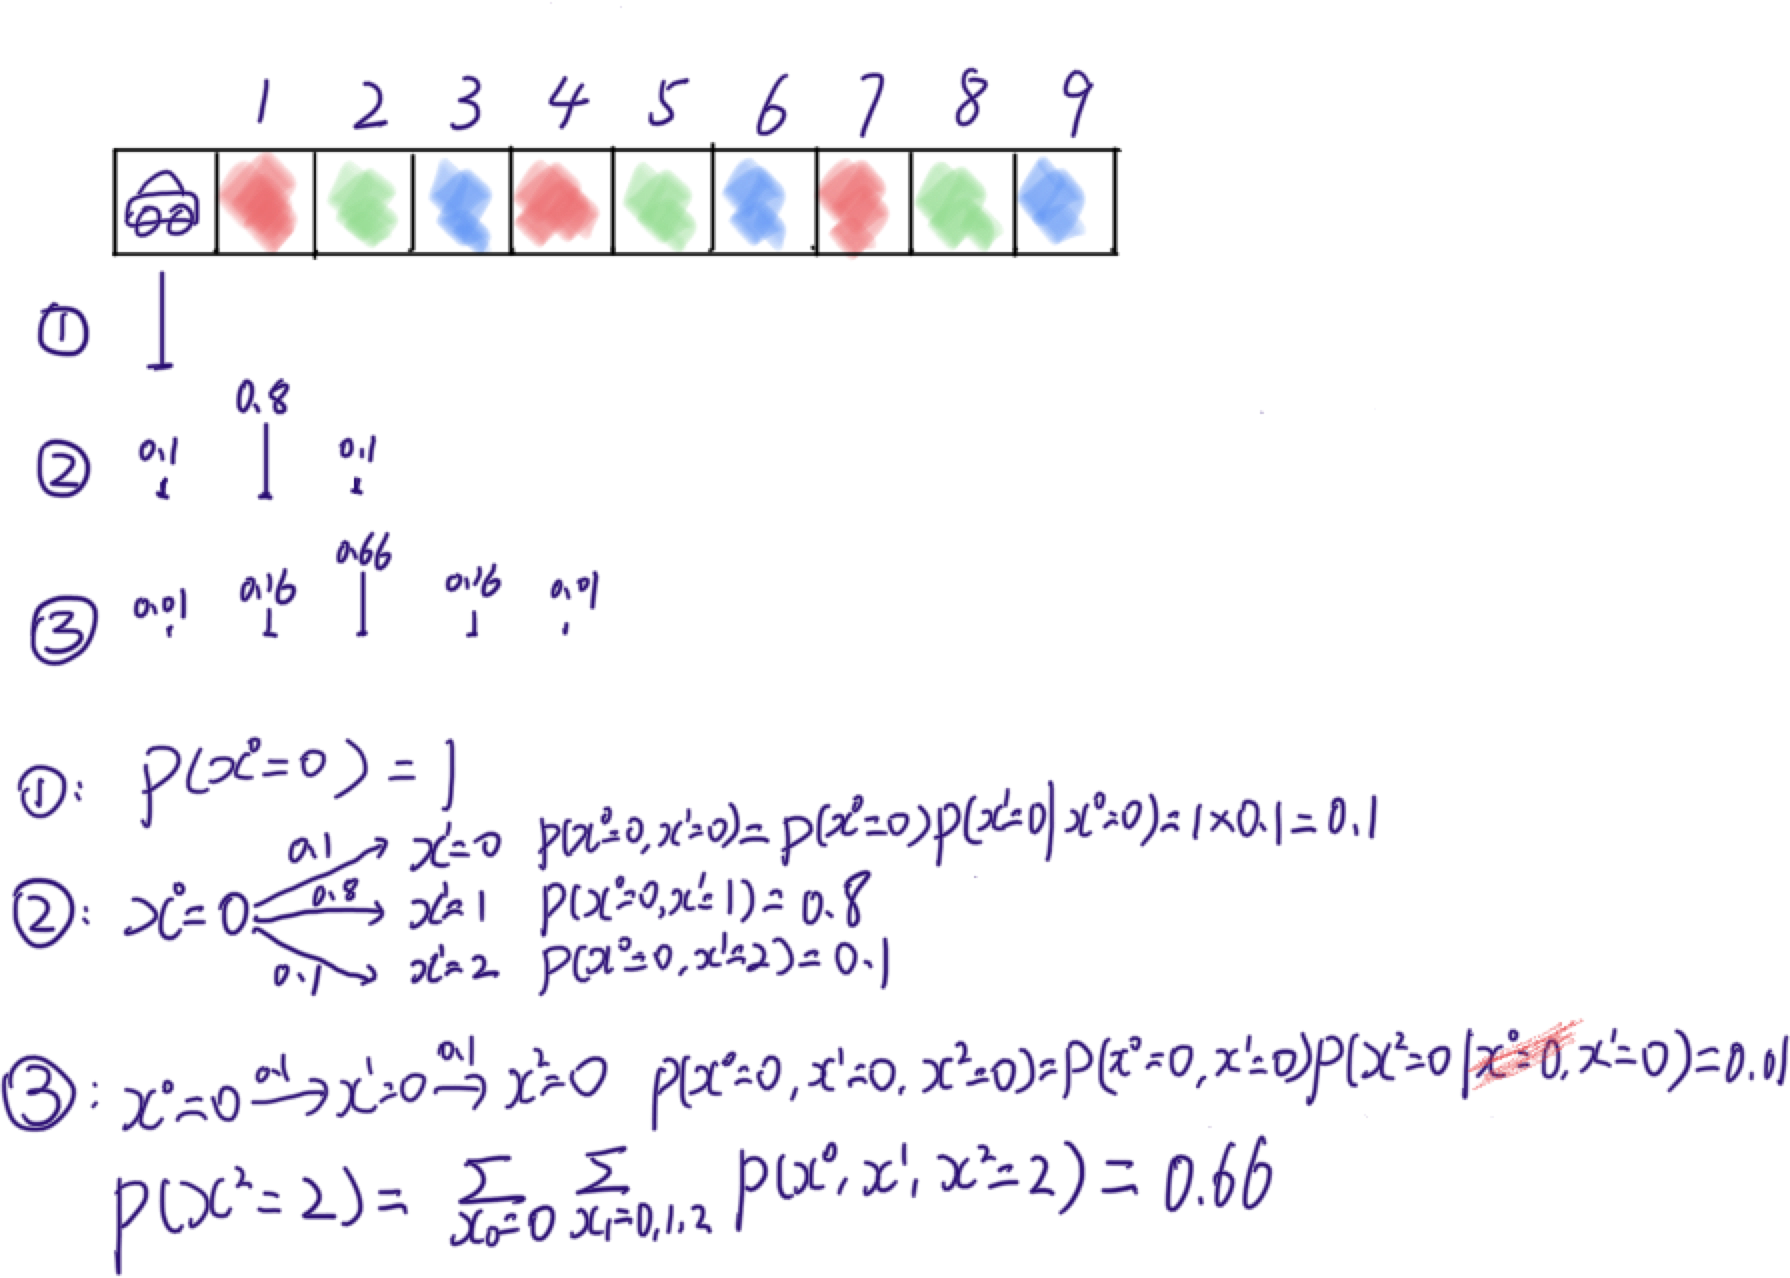 1 2 3 4 5 6 7 8 9
①
0.8
② 0.1 0.1
0.66
③ 0.01 0.16 0.16 0.01
①: p(x⁰=0) = 1
0.1 x¹=0 p(x⁰=0, x¹=0) = p(x⁰=0)p(x¹=0|x⁰=0) = 1×0.1 = 0.1
②: x⁰=0 0.8 x¹=1 p(x⁰=0, x¹=1) = 0.8
0.1 x¹=2 p(x⁰=0, x¹=2) = 0.1
③: x⁰=0 →0.1 x¹=0 →0.1 x²=0 p(x⁰=0, x¹=0, x²=0) = p(x⁰=0, x¹=0)p(x²=0|x⁰=0, x¹=0) = 0.01
p(x²=2) = Σ x₀=0 Σ x₁=0,1,2 p(x⁰, x¹, x²=2) = 0.66